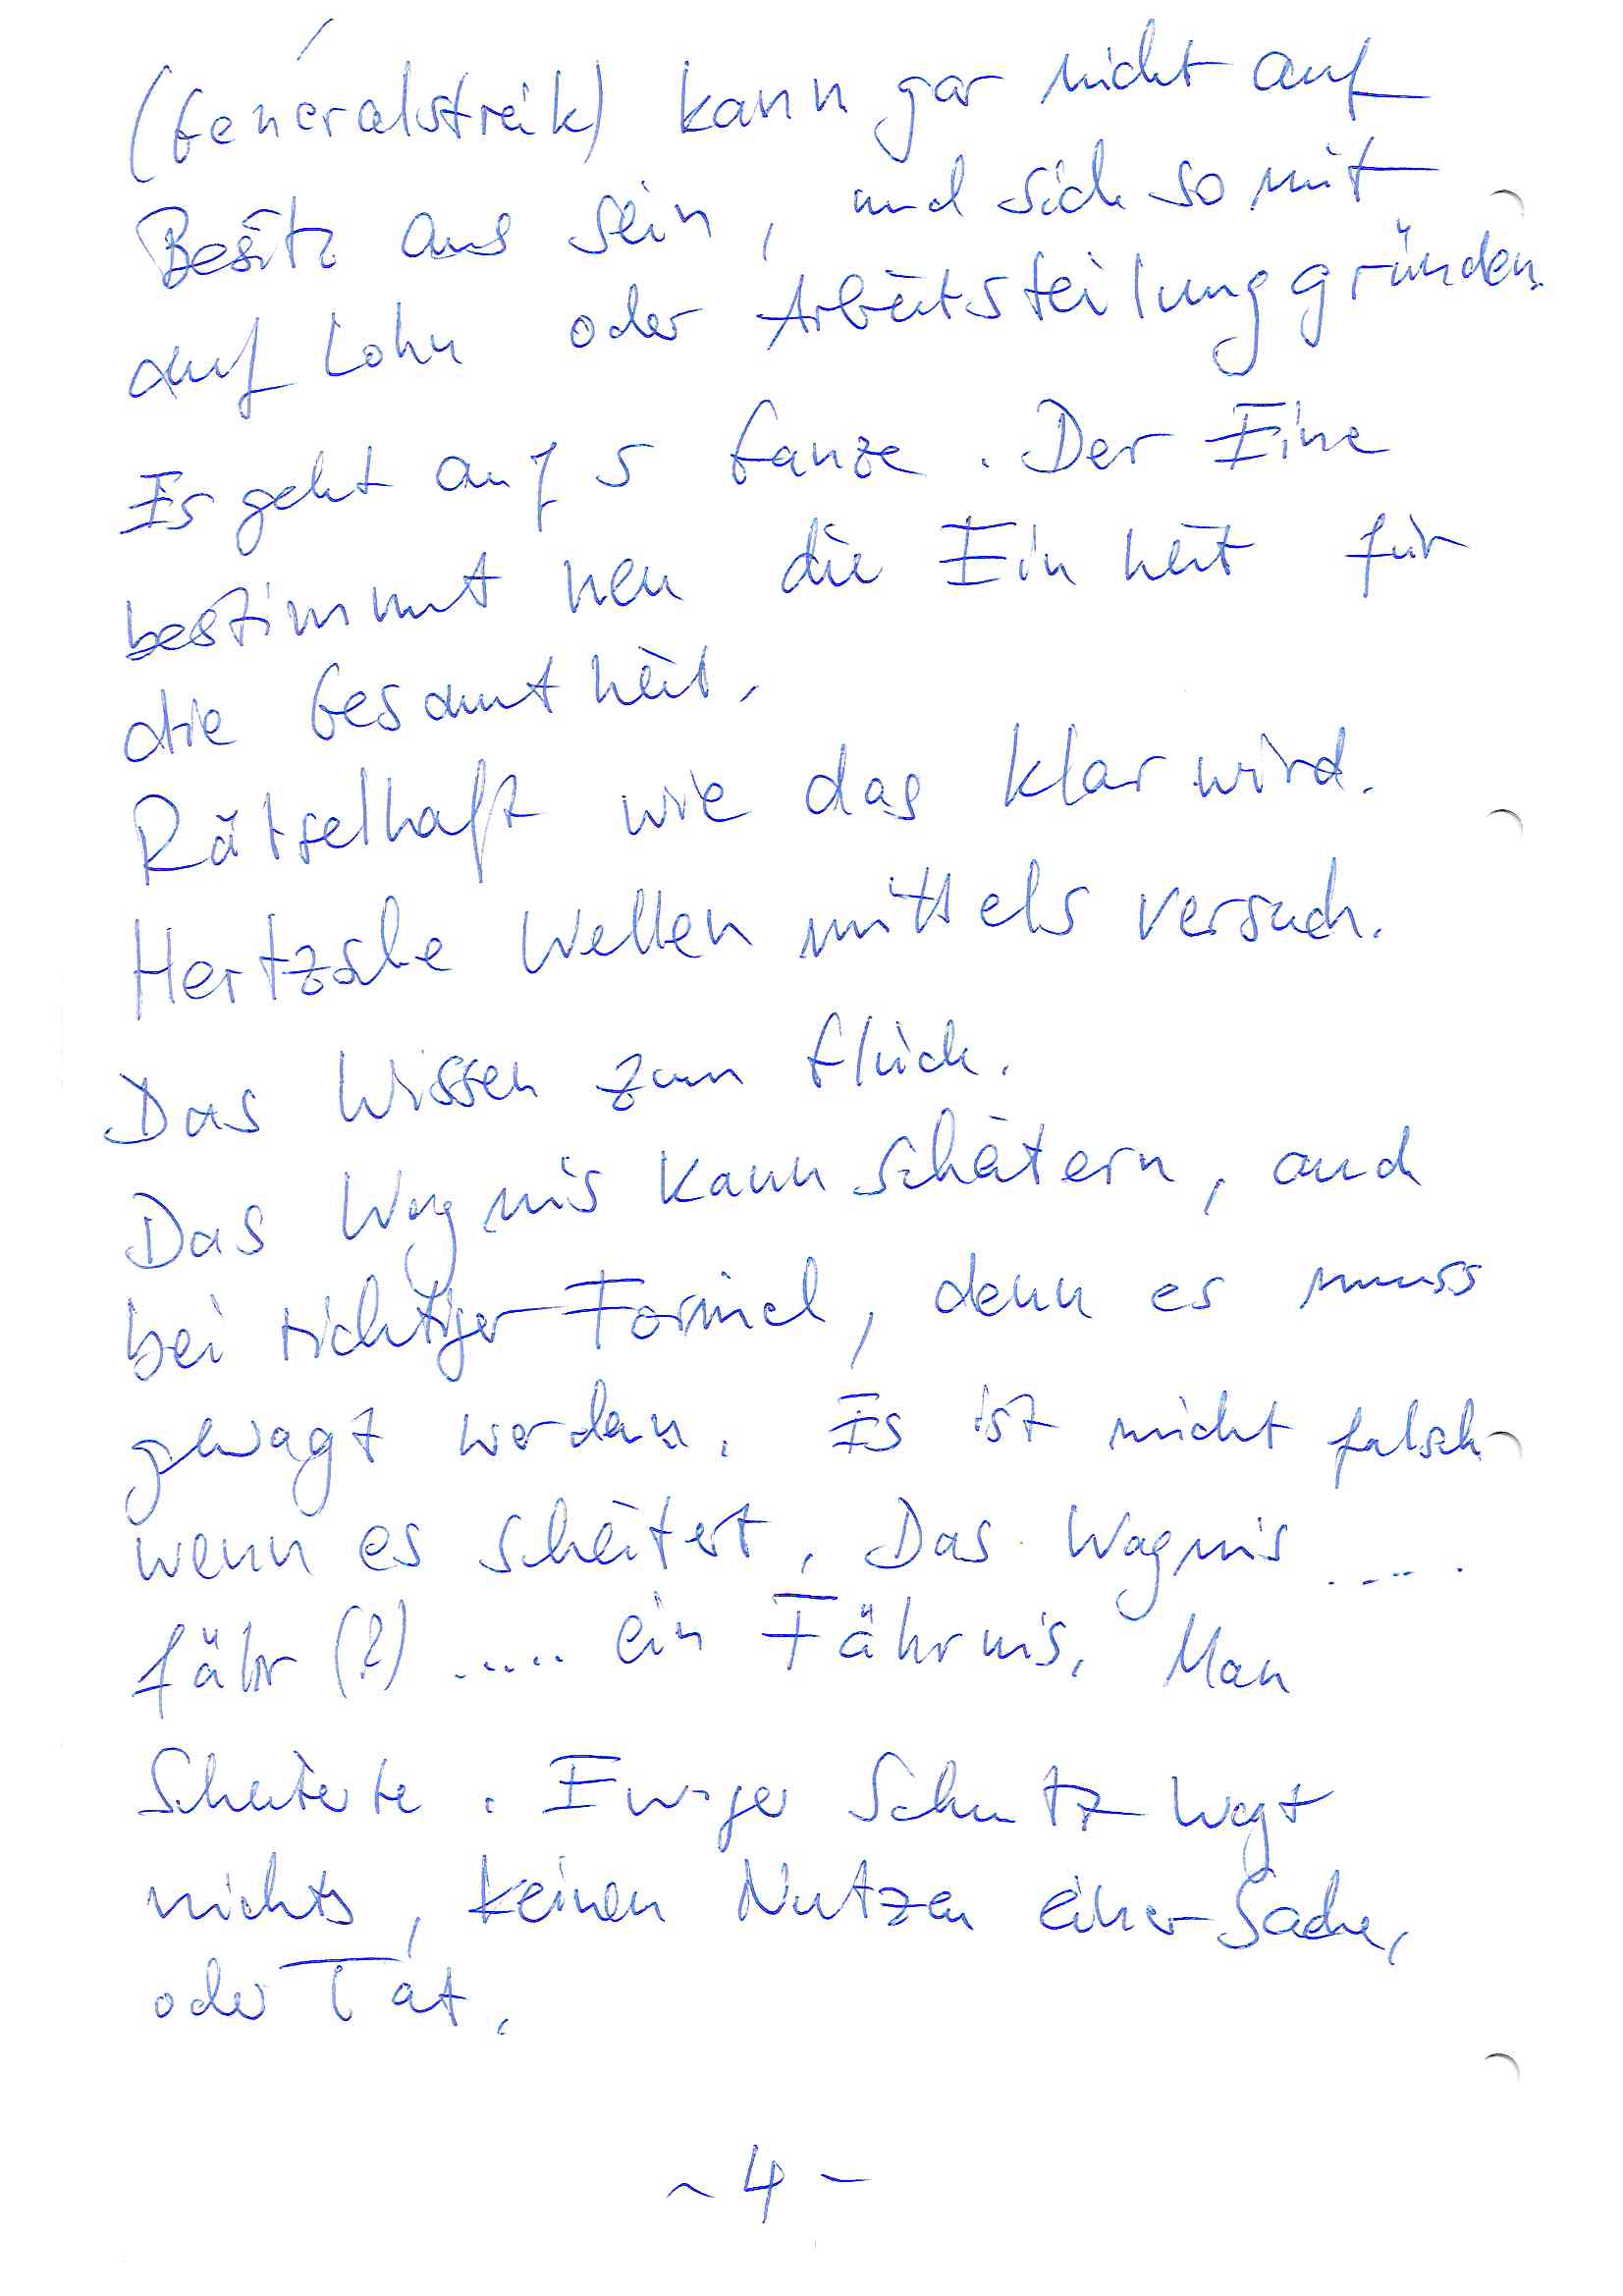 (Generalstreik) kann gar nicht auf
Besitz aus sein, und sich so mit
auf Lohn oder Arbeitsteilung gründen.
Es geht auf s Ganze. Der Eine
bestimmt neu die Einheit für
die Gesamtheit.
Rätselhaft wie das klar wird.
Hertzsche Wellen mittels Versuch.
Das Wissen zum Glück.
Das Wagnis kann scheitern, auch
bei richtiger Formel, denn es muss
gewagt werden. Es ist nicht falsch
wenn es scheitert. Das Wagnis .....
fähr (?) ..... ein Fährnis. Man
Scheiterte. Ewiger Schutz wagt
nichts, keinen Nutzen einer Sache,
oder Tat.
~ 4 -